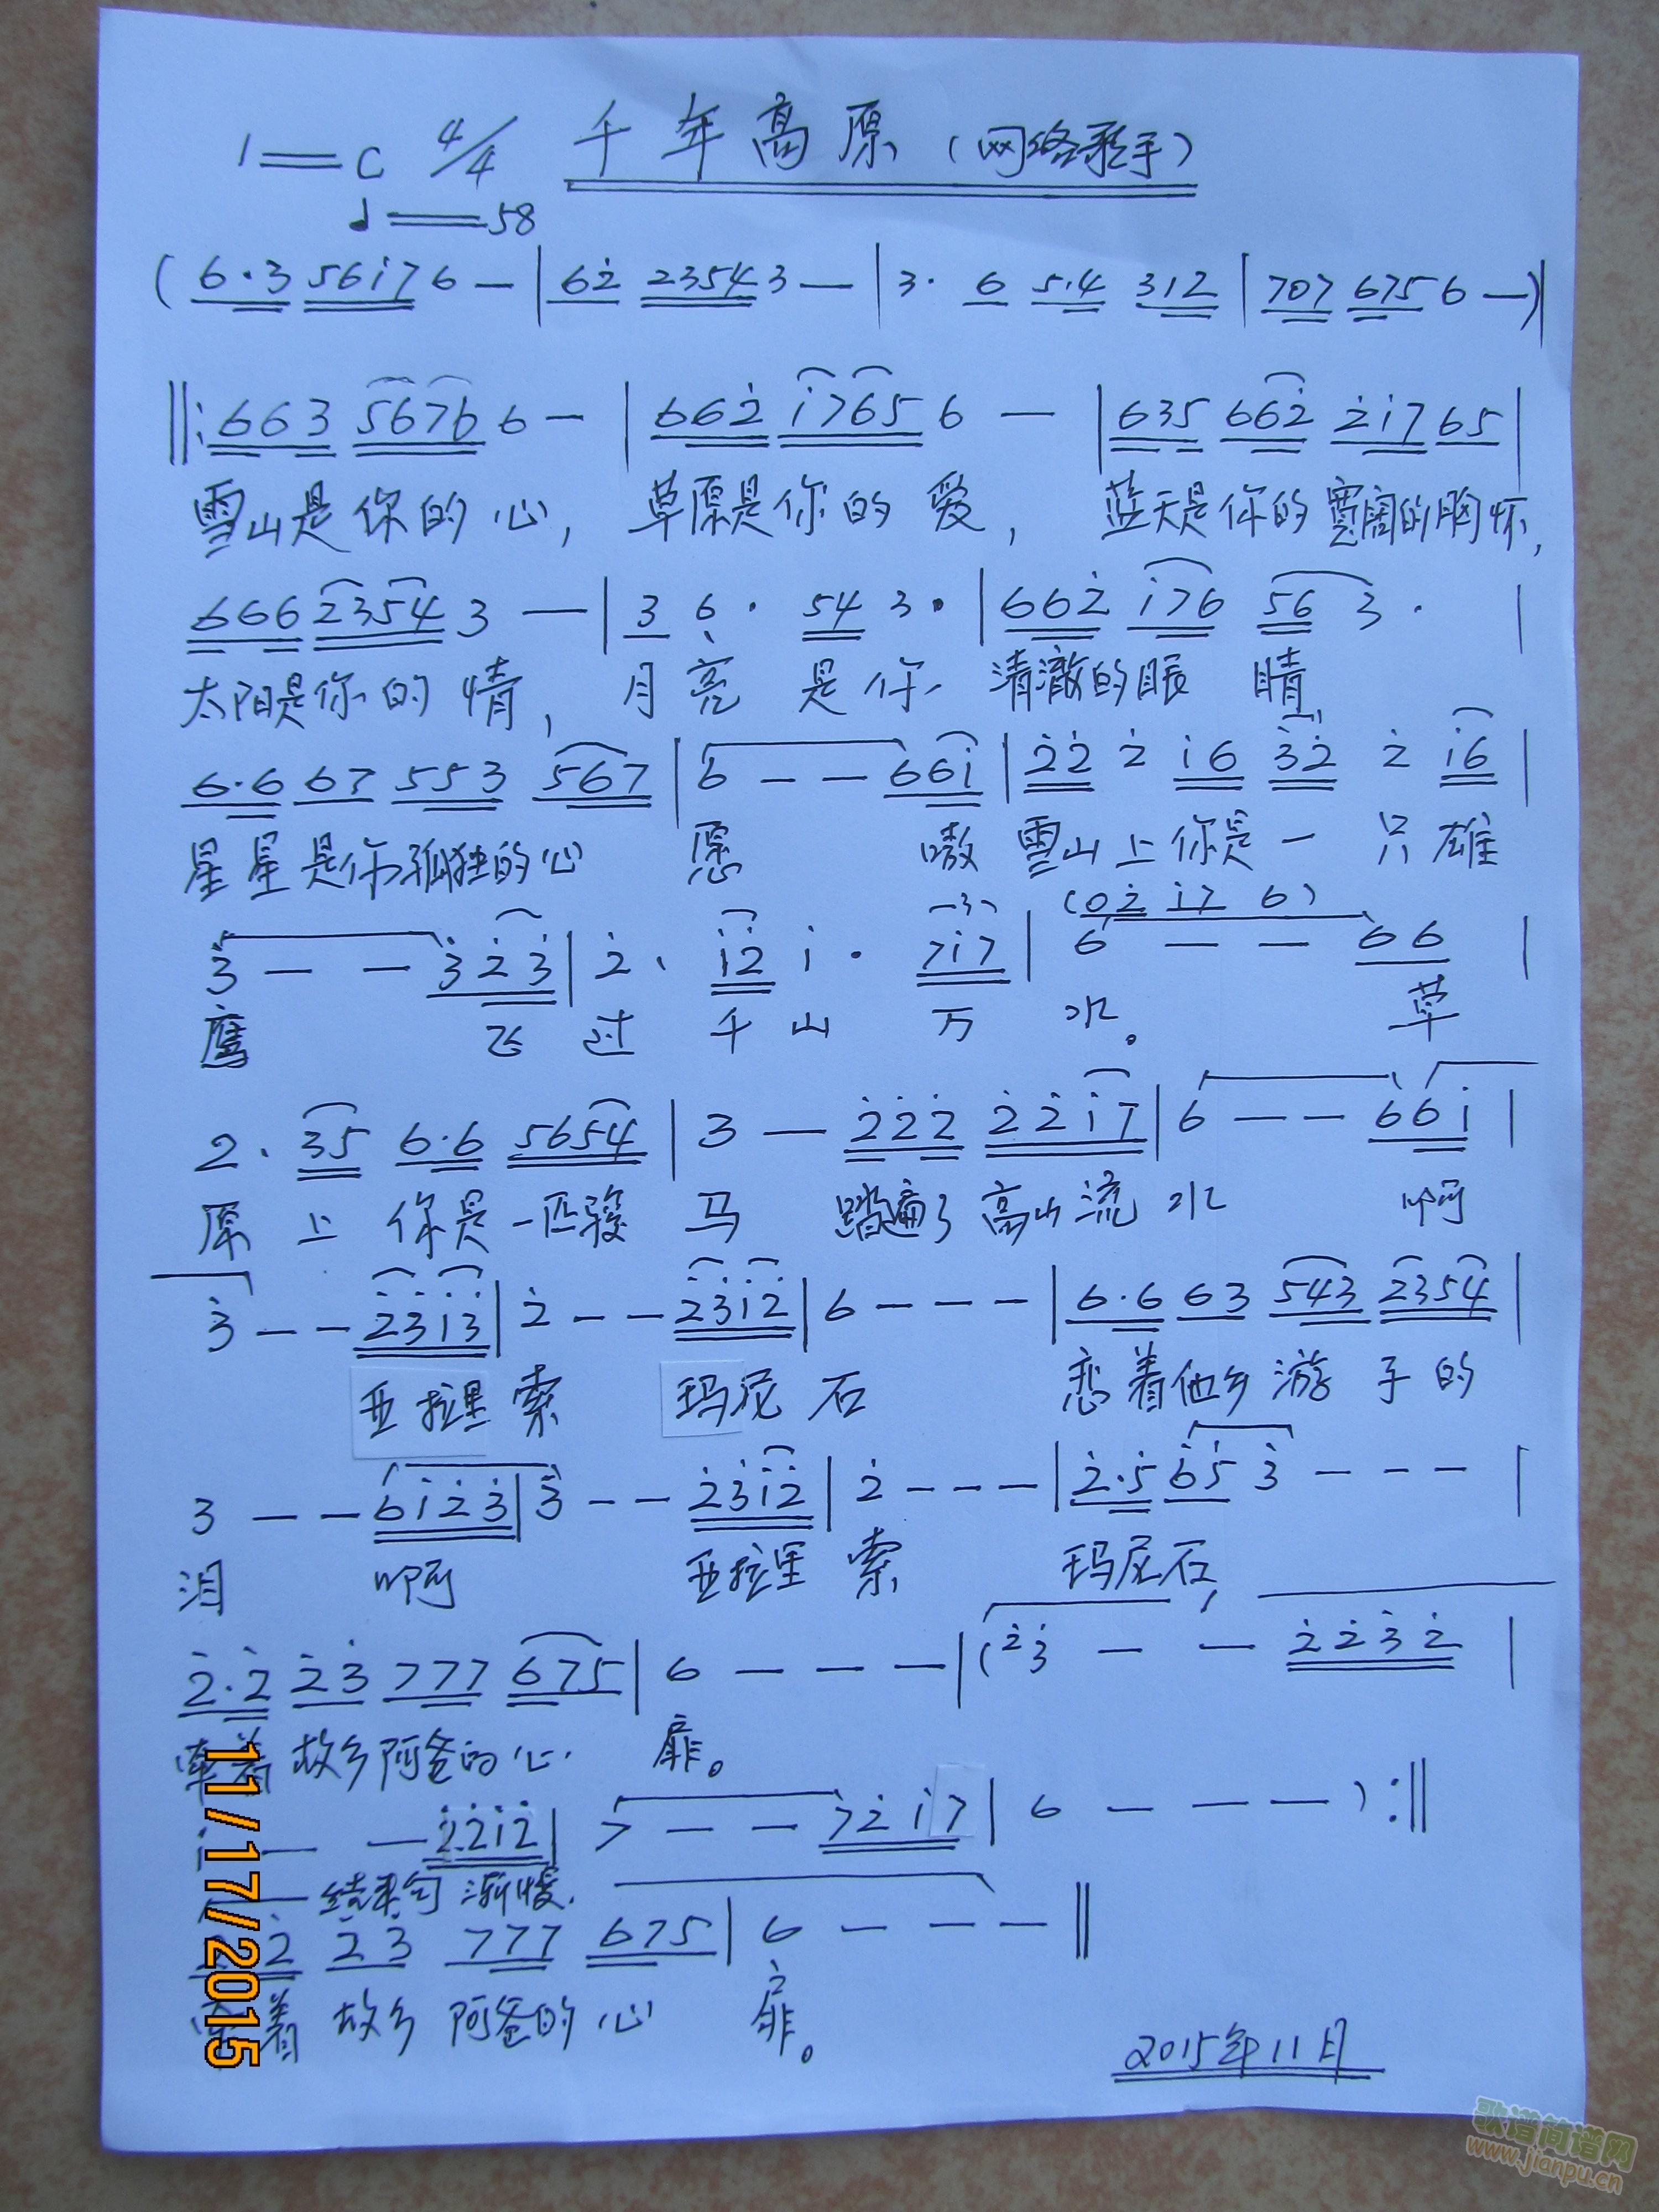 1=C 4/4 千年高原(网络歌手)
♩=58
(6·3 56i7 6 — | 62 2354 3 — | 3· 6 5·4 312 | 707 675 6 —)|
‖: 663 5676 6 — | 662 i765 6 — | 635 662 2i7 65 |
雪山是你的心, 草原是你的爱, 蓝天是你的宽阔的胸怀,
666 2354 3 — | 3 6· 54 3· | 662 i76 56 3· |
太阳是你的情, 月亮是你 清澈的眼睛
6·6 67 553 567 | 6 — — 66i | 22 2 i6 32 2 i6 |
星星是你孤独的心愿 嗷雪山上你是一只雄
(02 i7 6)
3 — — 323 | 2· i2 i· 7i7 | 6 — — 66 |
鹰 飞过千山万水。 草
2· 35 6·6 5654 | 3 — 222 22i7 | 6 — — 66i |
原上你是一匹骏马 踏遍了高山流水 啊
3 — — 23i3 | 2 — — 23i2 | 6 — — — | 6·6 63 543 2354 |
亚拉里索 玛尼石 恋着他乡游子的
3 — — 6i23 | 3 — — 23i2 | 2 — — — | 2·5 65 3 — — — |
泪 啊 亚拉里索 玛尼石,
2·2 23 777 675 | 6 — — — | (23 — — 2232 |
牵着故乡阿爸的心扉。
i — — 22i2 | 7 — — 72i7 | 6 — — —) :‖
结束句 渐慢.
2 23 777 675 | 6 — — — ‖
牵着故乡阿爸的心 扉。
2015年11月
11/17/2015
歌谱简谱网
www.jianpu.cn